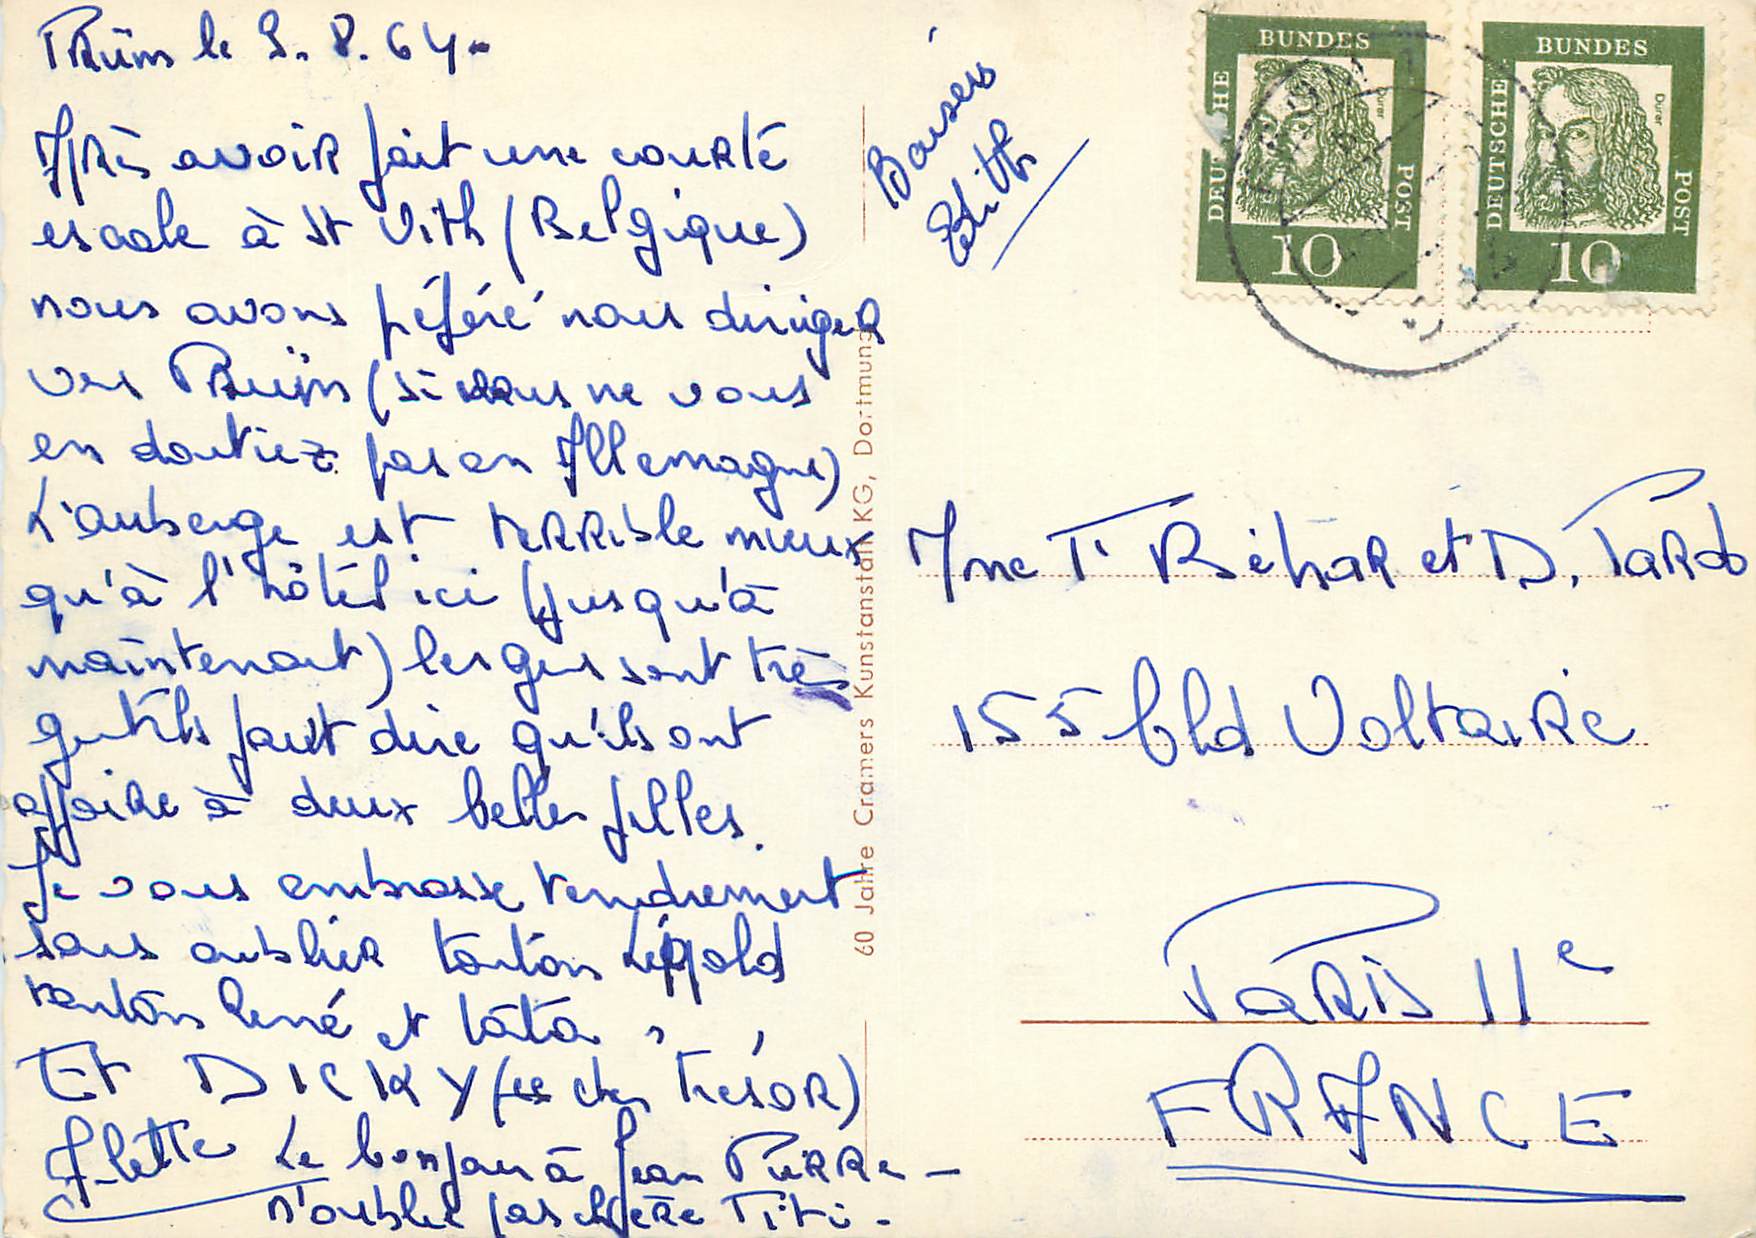 Prüm le 9.8.64-
Après avoir fait une courte
escale à St Vith (Belgique)
nous avons péféré nous diriger
vers Prüm (si vous ne vous
en doutiez pas en Allemagne)
L'auberge est terrible mieux
qu'à l'hôtel ici (jusqu'à
maintenant) les gens sont très
gentils faut dire qu'ils ont
affaire à deux belles filles.
Je vous embrasse tendrement
sans oublier tonton Léopold
tonton René et tata,
Et DICKY (ce cher trésor)
Arlette Le bonjour à Jean Pierre-
n'oublie pas chère Titi-
Baisers
Edith
DEUTSCHE BUNDES POST
Dürer
10
DEUTSCHE BUNDES POST
Dürer
10
60 Jahre Cramers Kunstanstalt KG, Dortmund
Mme T. Béhar et D. Pardo
155 bld Voltaire
Paris 11e
FRANCE